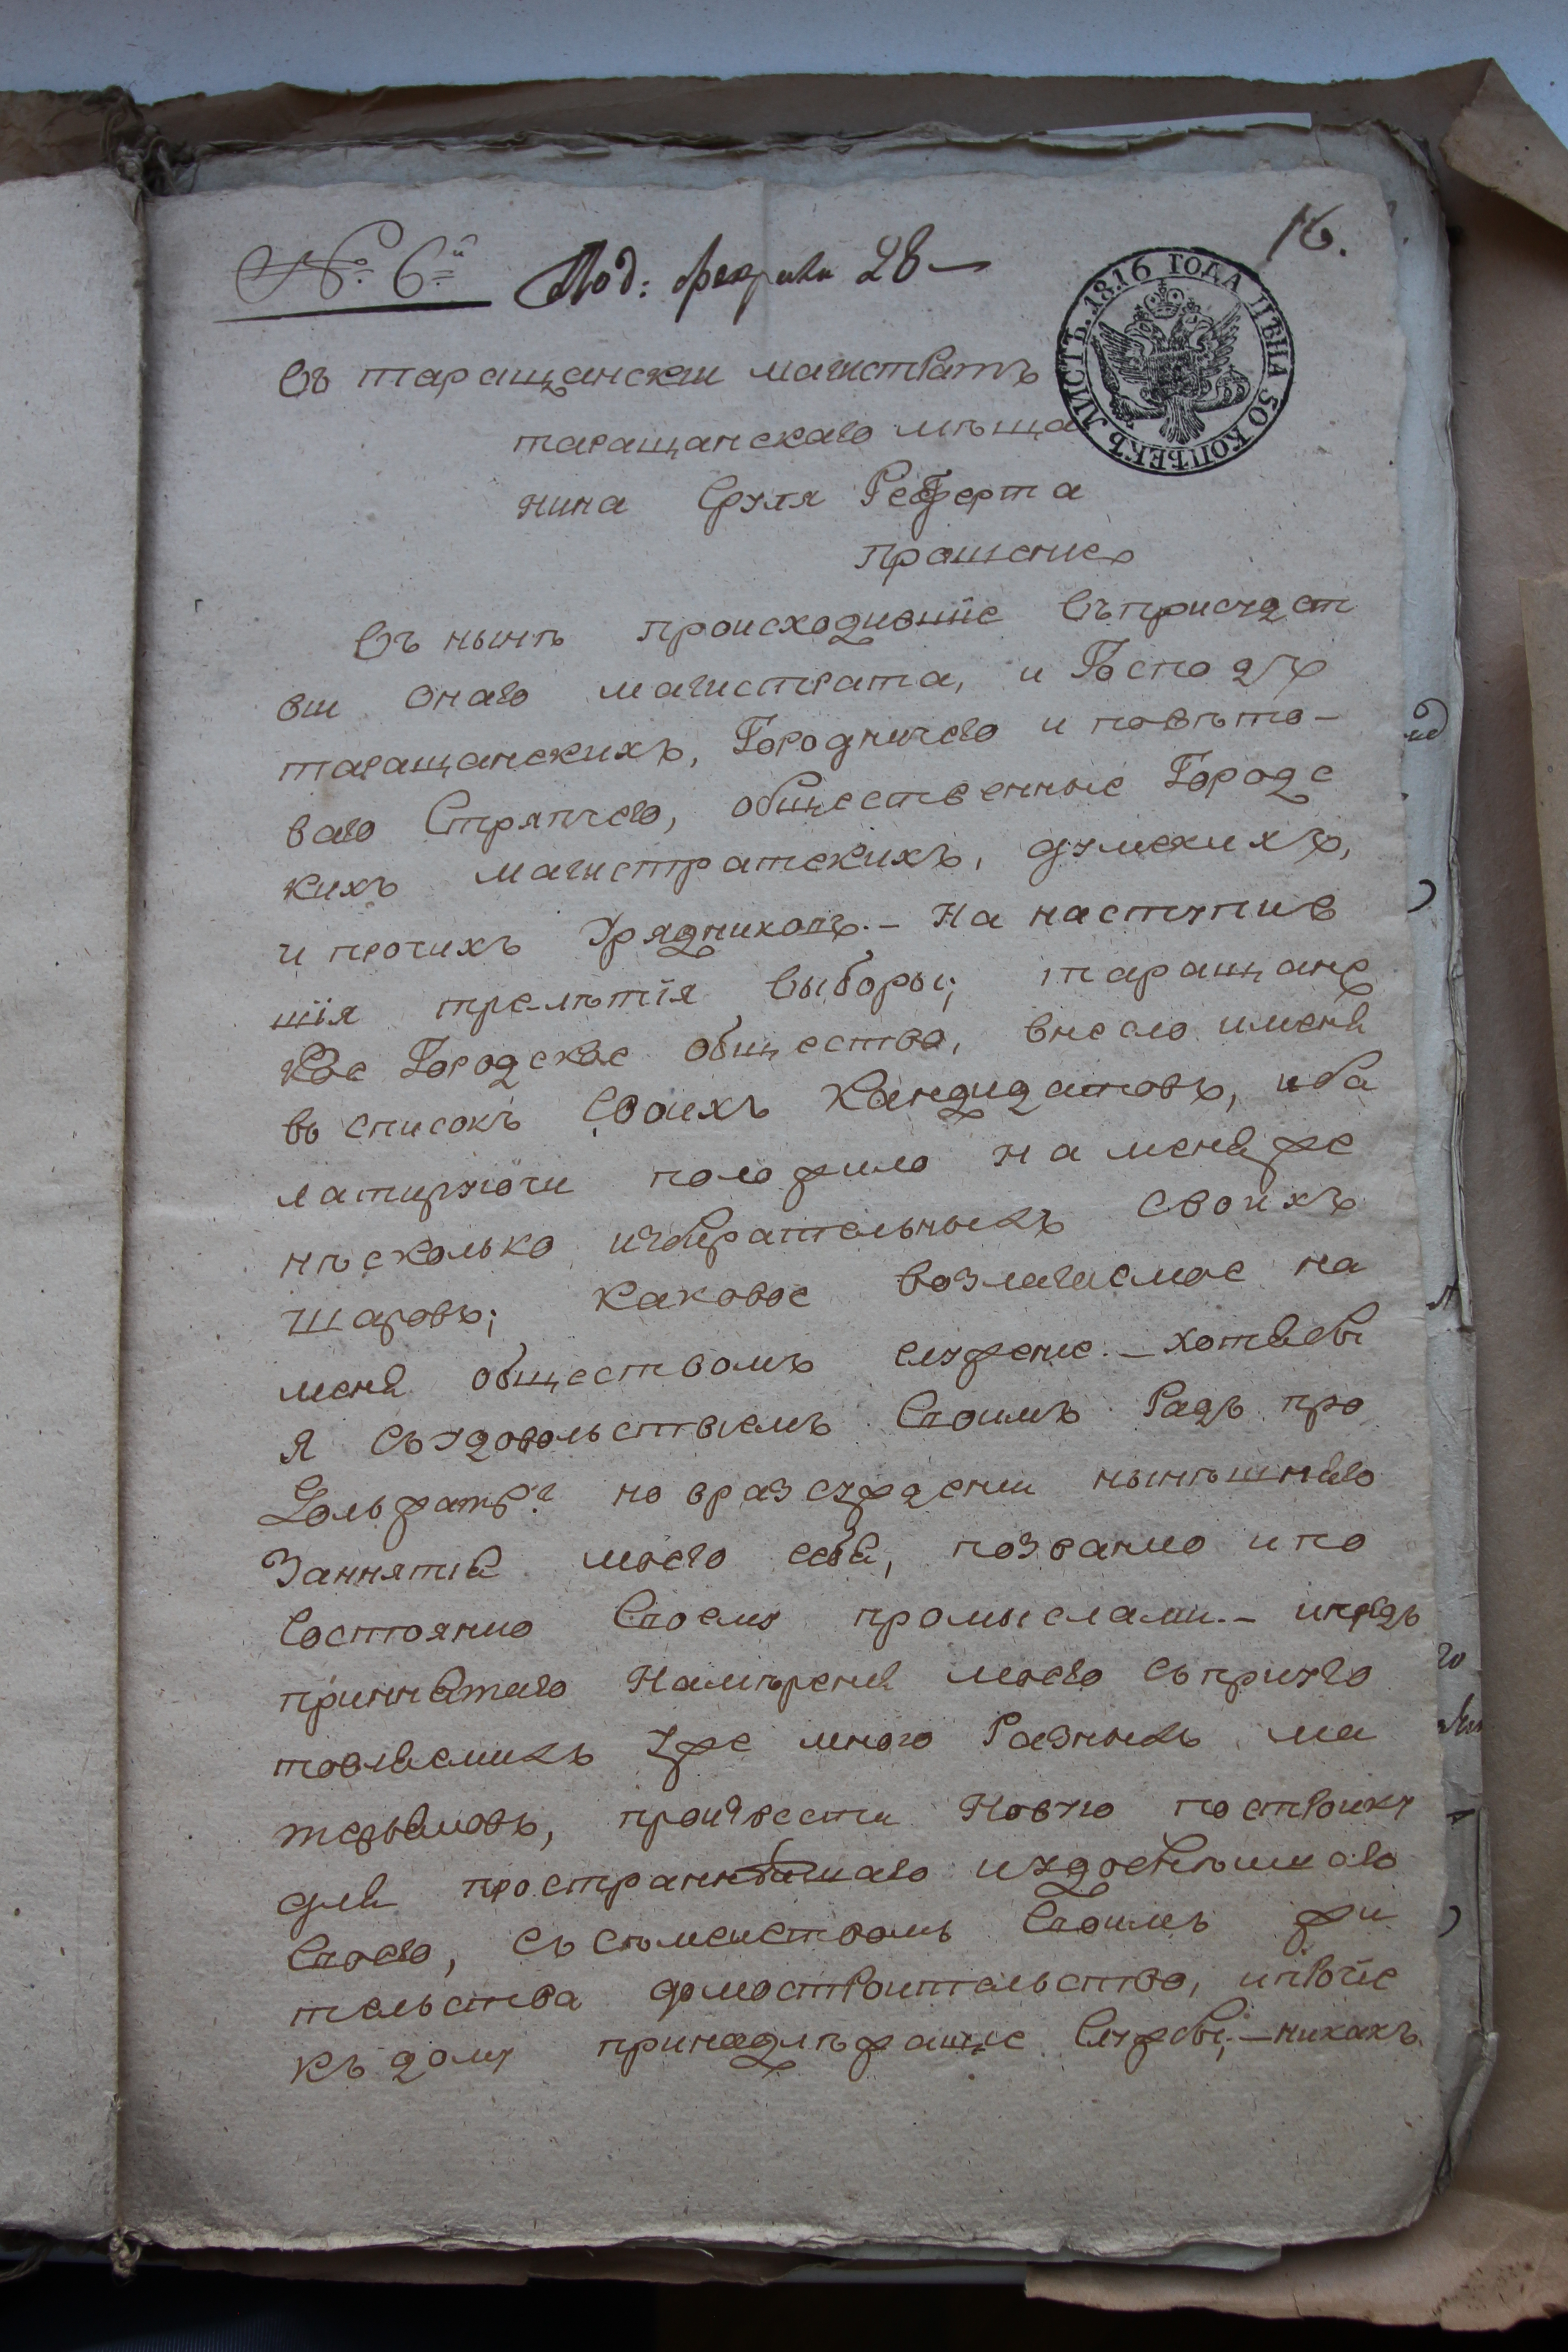 16.
№ 6й Под: февраля 28 —
ЛИСТЪ. 1816 ГОДА ЦѢНА 50 КОПѢЕКЪ
Въ таращанскии магистратъ
таращанскаго мѣща
нина Сруля Реферта
прошение
Въ нынѣ происходившие въприсудст
вии онаго магистрата, и Господъ
таращанскихъ, Городничего и повѣто-
ваго Стряпчего, общественные Городс
кихъ магистратскихъ, думскихъ,
и прочихъ Урядниковъ. – На наступив
шія трелѣтія выборы; таращанс
кое Городское общество, внесло имења
въ список своихъ Кандидатовъ, иба
латируючи положило на меняже
нѣсколько избирательныхъ своихъ
шаровъ; каковое возлагаемое на
меня обществомъ служение. – хотябы
я съудовольствиемъ своимъ Радъ про
должать? но вразсуждении нынѣшняго
Заннятия моего себя, позванию ипо
состоянию своему промыслами. –
приннятаго Намѣрения моего съприуго
товляемихъ уже много Разныхъ ма
терьяловъ, произвести Новую построику
для иудобнѣишого
своего, съсѣмеиствомъ своимъ жи
тельства домостроительство, ипрочие
къ дому принадлѣжащие службы; – никакъ